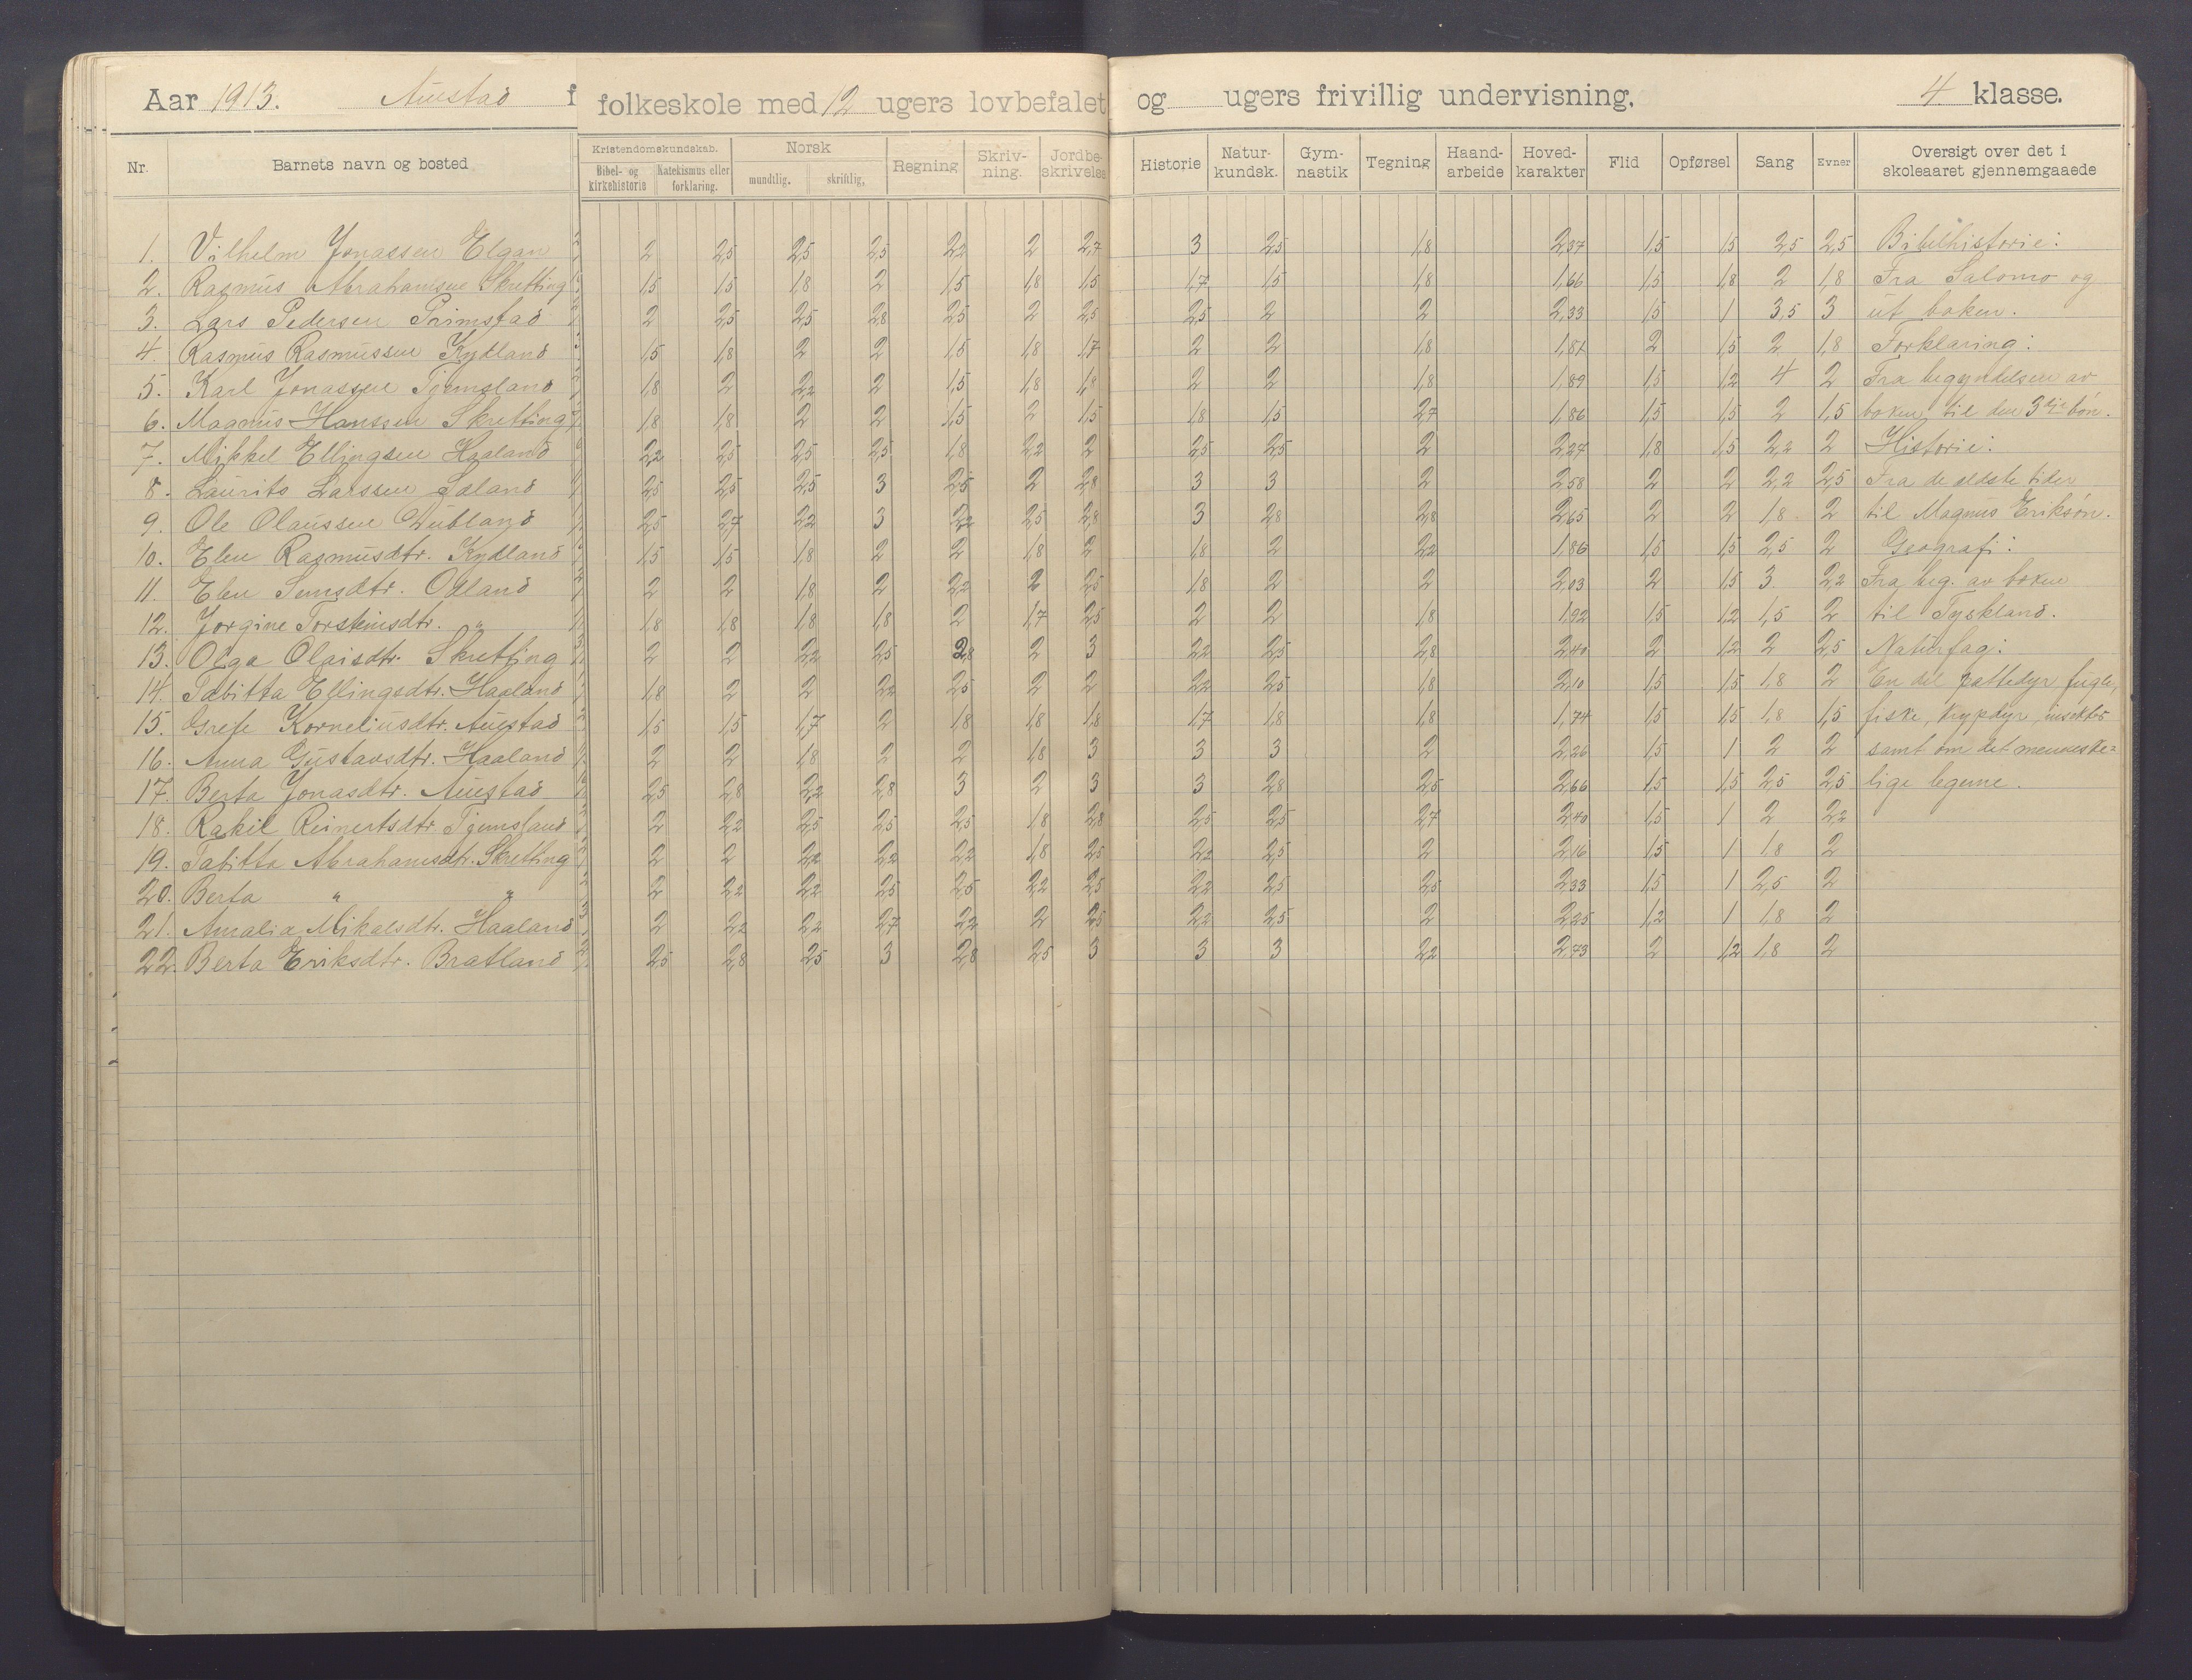 Aar 1913. Auestad folkeskole med 12 ugers lovbefalet og ugers frivillig undervisning. 4 klasse.
Nr. Barnets navn og bosted Kristendomskundskab. Bibel- og kirkehistorie Katekismus eller forklaring. Norsk mundtlig. skriftlig. Regning Skriv-ning. Jordbe-skrivelse Historie Natur-kundsk. Gym-nastik Tegning Haand-arbeide Hoved-karakter Flid Opførsel Sang Evner Oversigt over det i skoleaaret gjennemgaaede
1. Vilhelm Jonassen Elgan 2 2,5 2,5 2,5 2,2 2 2,7 3 2,5 1,8 2,37 1,5 1,5 2,5 2,5 Bibelhistorie:
2. Rasmus Abrahamsen Skretting 1,5 1,5 1,8 2 1,5 1,8 1,5 1,7 1,5 1,8 1,66 1,5 1,8 2 1,8 Fra Salomo og
3. Lars Pedersen Primstad 2 2,5 2,5 2,8 2,5 2 2,5 2,5 2 2 2,33 1,5 1 3,5 3 ut boken.
4. Rasmus Rasmussen Kydland 1,5 1,8 2 2 1,5 1,8 1,7 2 2 1,8 1,81 2 1,5 2 1,8 Forklaring:
5. Karl Jonassen Tjemsland 1,8 2 2,2 2 1,5 1,8 1,8 2 2 1,8 1,89 1,5 1,2 4 2 Fra begyndelsen av
6. Magnus Hanssen Skretting 1,8 1,8 2 2 1,5 2 1,5 1,8 1,5 2,7 1,86 1,5 1,5 2 1,5 boken til den 3dje bøn.
7. Mikkel Ellingsen Haaland 2,2 2,5 2,5 2,5 1,8 2,2 2 2,5 2,5 2 2,27 1,8 1,5 2,2 2 Historie:
8. Laurits Larssen 2,5 2,5 2,5 3 2,5 2 2,8 3 3 2 2,58 2 2 2,2 2,5 Fra de ældste tider
9. Ole Olaussen Dubland 2,5 2,7 2,2 3 2,2 2,5 2,8 3 2,8 2,8 2,65 2 2 1,8 2 til Magnus Eriksøn.
10. Elen Rasmusdtr. Kydland 1,5 1,5 1,8 2 2 1,8 2 1,8 2 2,2 1,86 1,5 1,5 2,5 2 Geografi:
11. Elen Odland 2 2 1,8 2 2,2 2 2,5 1,8 2 2 2,03 2 1,5 3 2,2 Fra beg. av boken
12. Jorgine Torsteinsdtr. " 1,8 1,8 1,8 1,8 2 1,7 2,5 2 2 1,8 1,92 1,5 1,2 1,5 2 til Tyskland.
13. Olga Olaisdtr. Skretting 2 2 2,2 2,5 2,8 2 3 2,2 2,5 2,8 2,40 2 1,2 2 2,5 Naturfag:
14. Tabitta Ellingsdtr. Haaland 1,8 2 2 2,2 2,5 2 2 2,2 2,5 1,8 2,10 1,5 1,5 1,8 2 En del pattedyr, fugle,
15. Grete Korneliusdtr. Auestad 1,5 1,5 1,7 2 1,8 1,8 1,8 1,7 1,8 1,8 1,74 1,5 1,5 1,8 1,5 fiske, krypdyr, insekter
16. Anna Gustavsdtr. Haaland 2 2 1,8 2 2 1,8 3 3 3 2 2,26 1,5 1 2 2 samt om det menneske=
17. Berta Jonasdtr. Auestad 2,5 2,8 2,2 2,8 3 2 3 3 2,8 2,5 2,66 1,5 1,5 2,5 2,5 lige legeme.
18. Rakel Reinertsdtr. Tjemsland 2 2,2 2,5 2,5 2,5 1,8 2,8 2,5 2,5 2,7 2,40 1,5 1 2 2,2
19. Tabitta Abrahamsdtr. Skretting 2 2 2,2 2,2 2,2 1,8 2,5 2,2 2,5 2 2,16 1,5 1 1,8 2
20. Berta " " 2 2,2 2,2 2,5 2,5 2,2 2,5 2,2 2,5 2,5 2,33 1,5 1 2,5 2
21. Amalia Mikalsdtr. Haaland 2 2,2 2,2 2,7 2,2 2 2,5 2,2 2,5 2 2,25 1,2 1 1,8 2
22. Berta Eriksdtr. Bratland 2,5 2,8 2,5 3 2,8 2,5 3 3 3 2,2 2,73 2 1,2 1,8 2